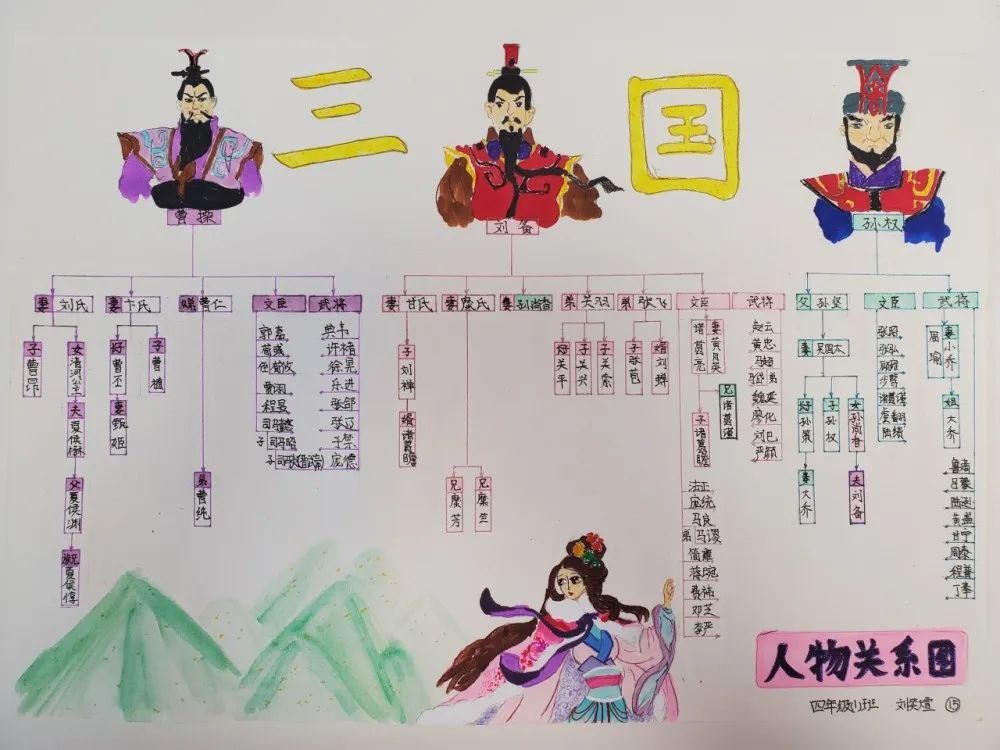 三国
曹操
刘备
孙权
妻 刘氏
妻 卞氏
曹仁
文臣
武将
妻 甘氏
妻 糜氏
妻 孙尚香
弟 关羽
弟 张飞
文臣
武将
父 孙坚
文臣
武将
子 曹昂
女 清河公主
夫 夏侯楙
父 夏侯渊
夏侯惇
曹丕
妻 甄姬
子 曹植
弟 曹纯
郭嘉
荀彧
荀攸
程昱
司马懿
子 司马昭
典韦
许褚
徐晃
乐进
张郃
张辽
于禁
庞德
子 刘禅
诸葛瞻
兄 糜芳
兄 糜竺
关平
子 关兴
子 关索
子 张苞
婿 刘禅
诸葛亮
妻 黄月英
兄 诸葛谨
子 诸葛瞻
法正
庞统
马良
弟 马谡
简雍
蒋琬
费祎
邓芝
李严
赵云
黄忠
马超
马岱 弟
魏延
廖化
刘巴
严颜
妻 吴国太
孙策
妻 大乔
子 孙权
女 孙尚香
夫 刘备
张昭
张弘
顾雍
步骘
诸葛谨
虞翻
陆绩
周瑜
妻 小乔
姐 大乔
鲁肃
吕蒙
陆逊
黄盖
甘宁
周泰
程普
丁奉
人物关系图
四年级(1)班 刘奕萱 ⑮